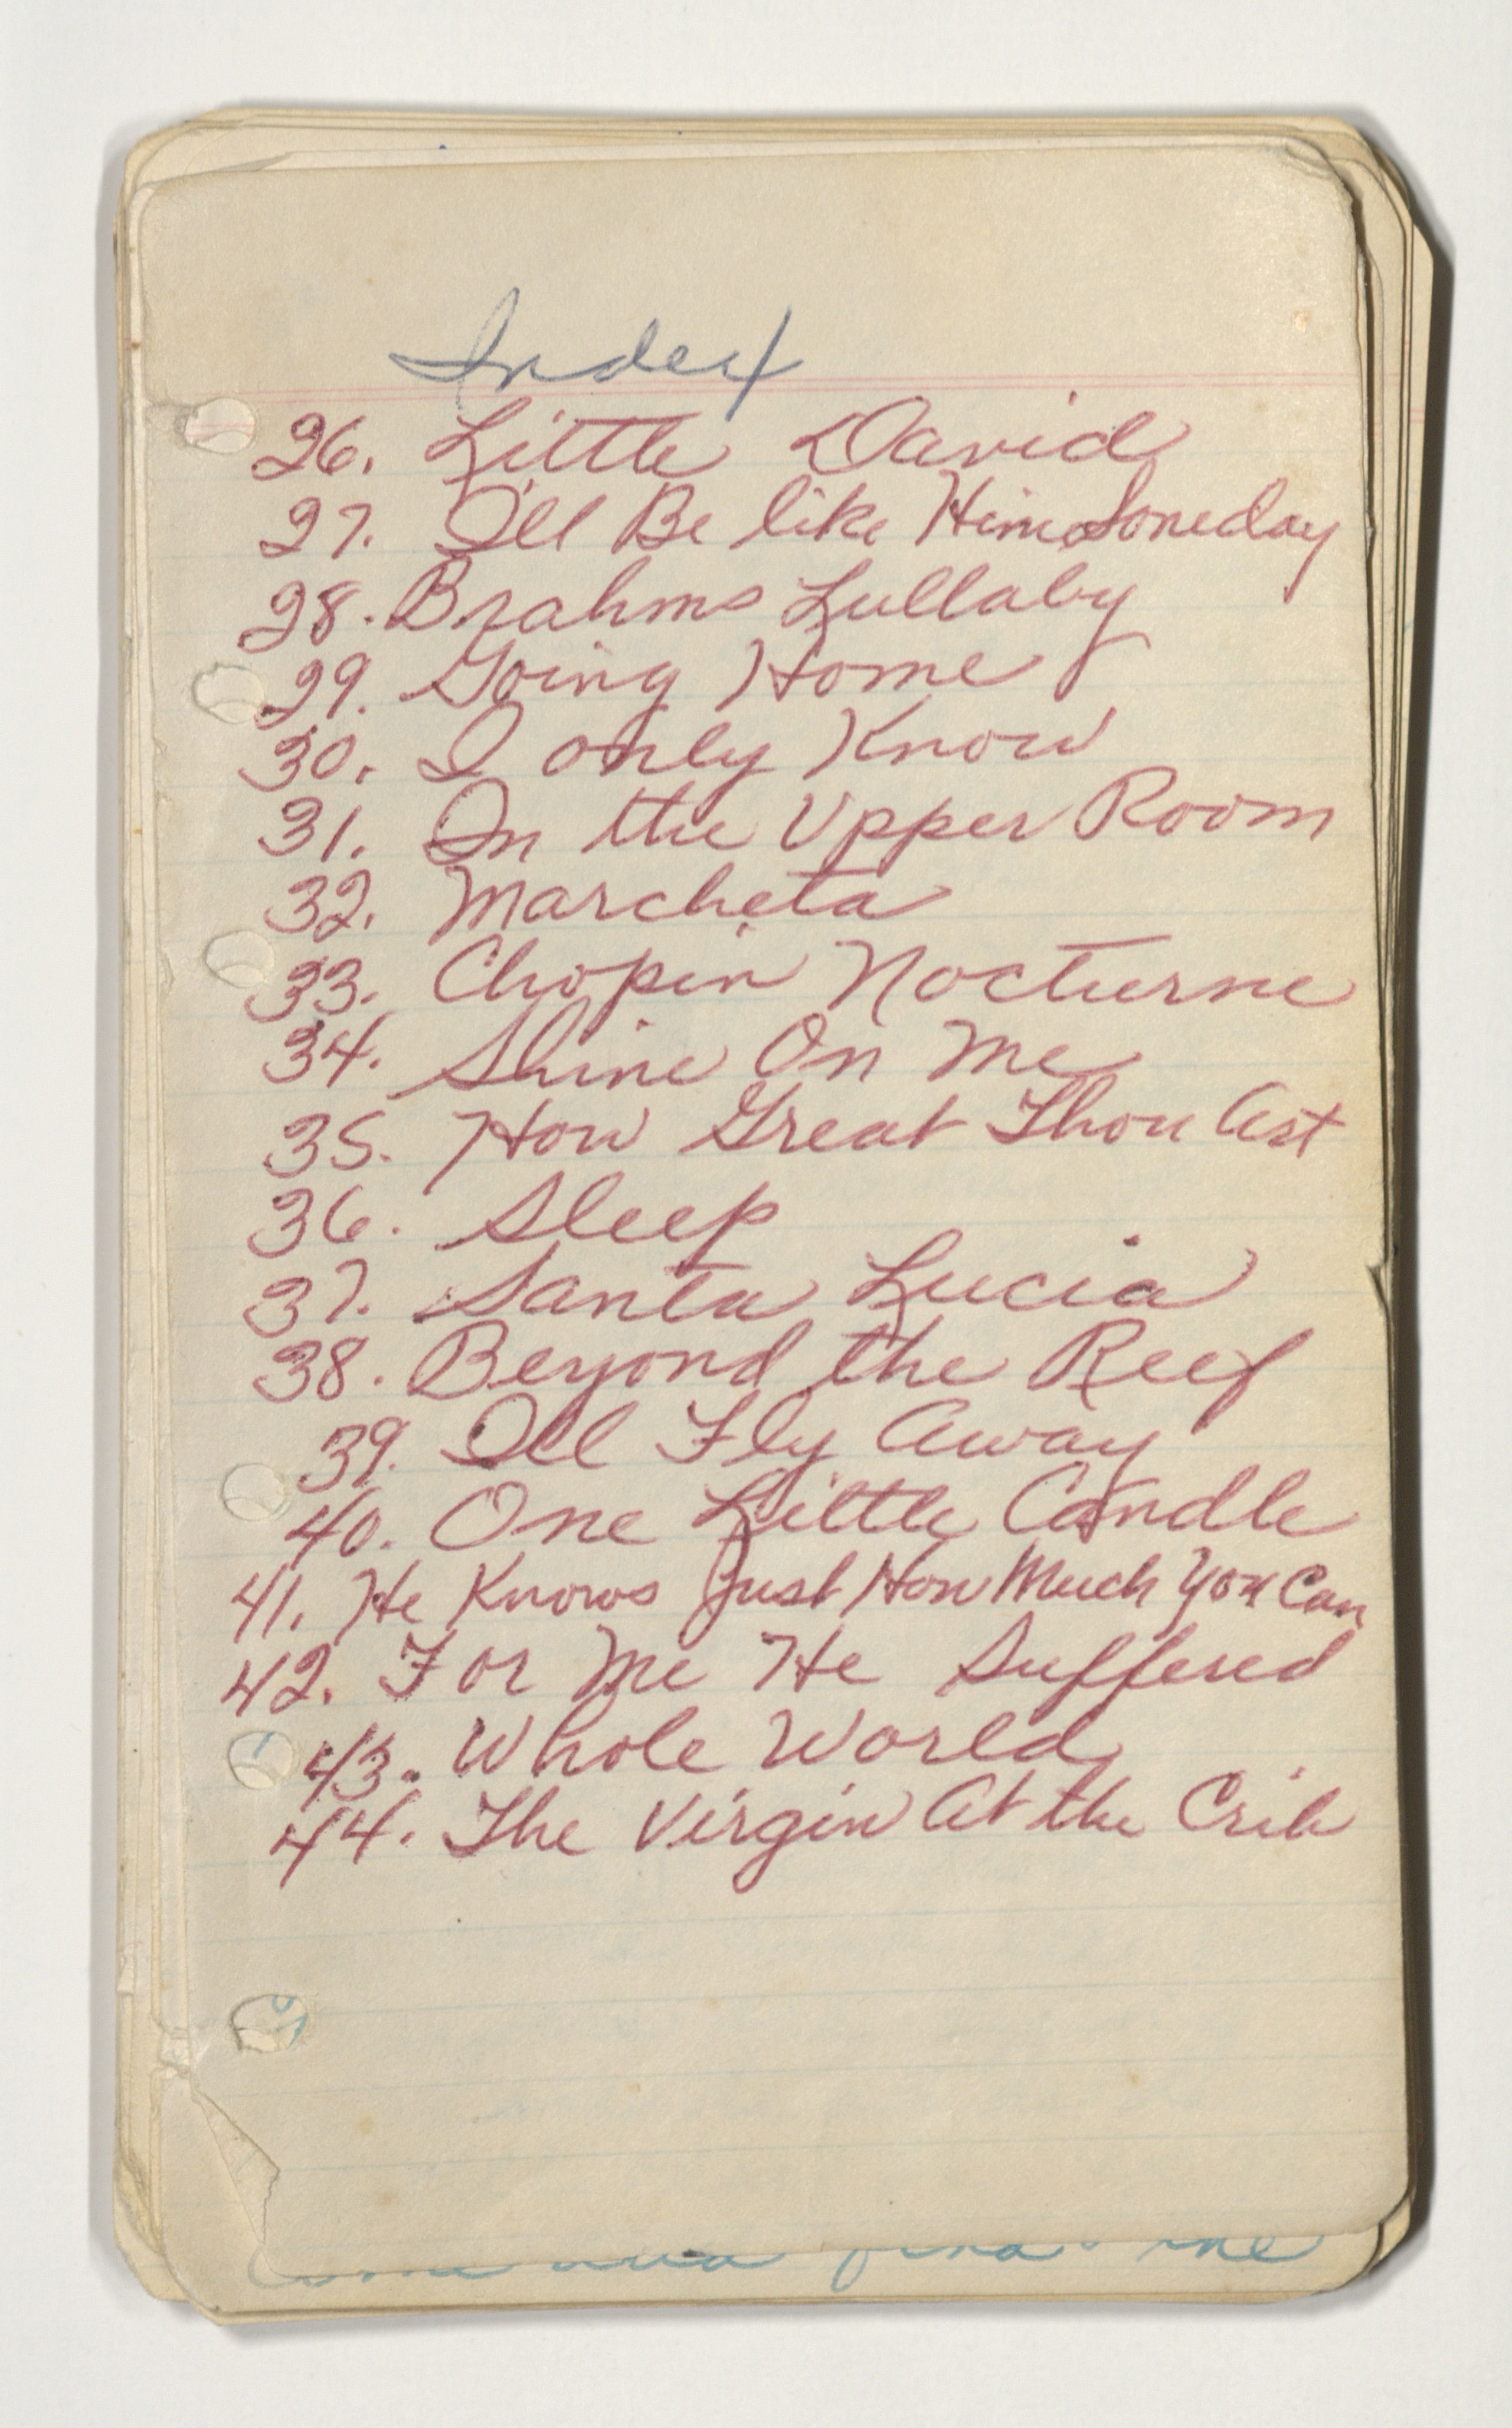 Index
26. Little David
27. I'll Be like Him Someday
28. Brahms Lullaby
29. Going Home
30. I only Know
31. In the Upper Room
32. Marcheta
33. Chopin Nocturne
34. Shine On Me
35. How Great Thou Art
36. Sleep
37. Santa Lucia
38. Beyond the Reef
39. I'll Fly Away
40. One Little Candle
41. He Knows Just How Much You Can
42. For Me He Suffered
43. Whole World
44. The Virgin At the Crib
find me